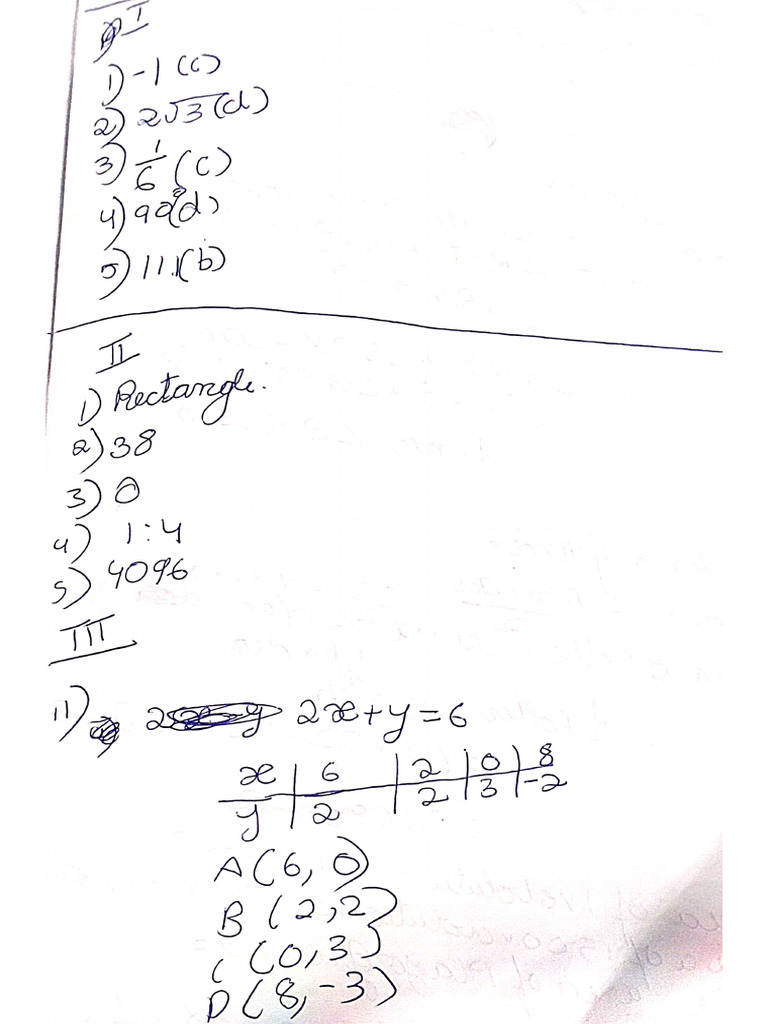 I
1) -1 (c)
2) 2√3 (d)
3) 1/6 (c)
4) 90° (d)
5) 111 (b)
II
1) Rectangle.
2) 38
3) 0
4) 1:4
5) 4096
III
11) 2x+y=6
x | 6 | 2 | 0 | 8
y | 2 | 2 | 3 | -2
A (6, 0)
B (2,2)
C (0,3)
D (8,-3)